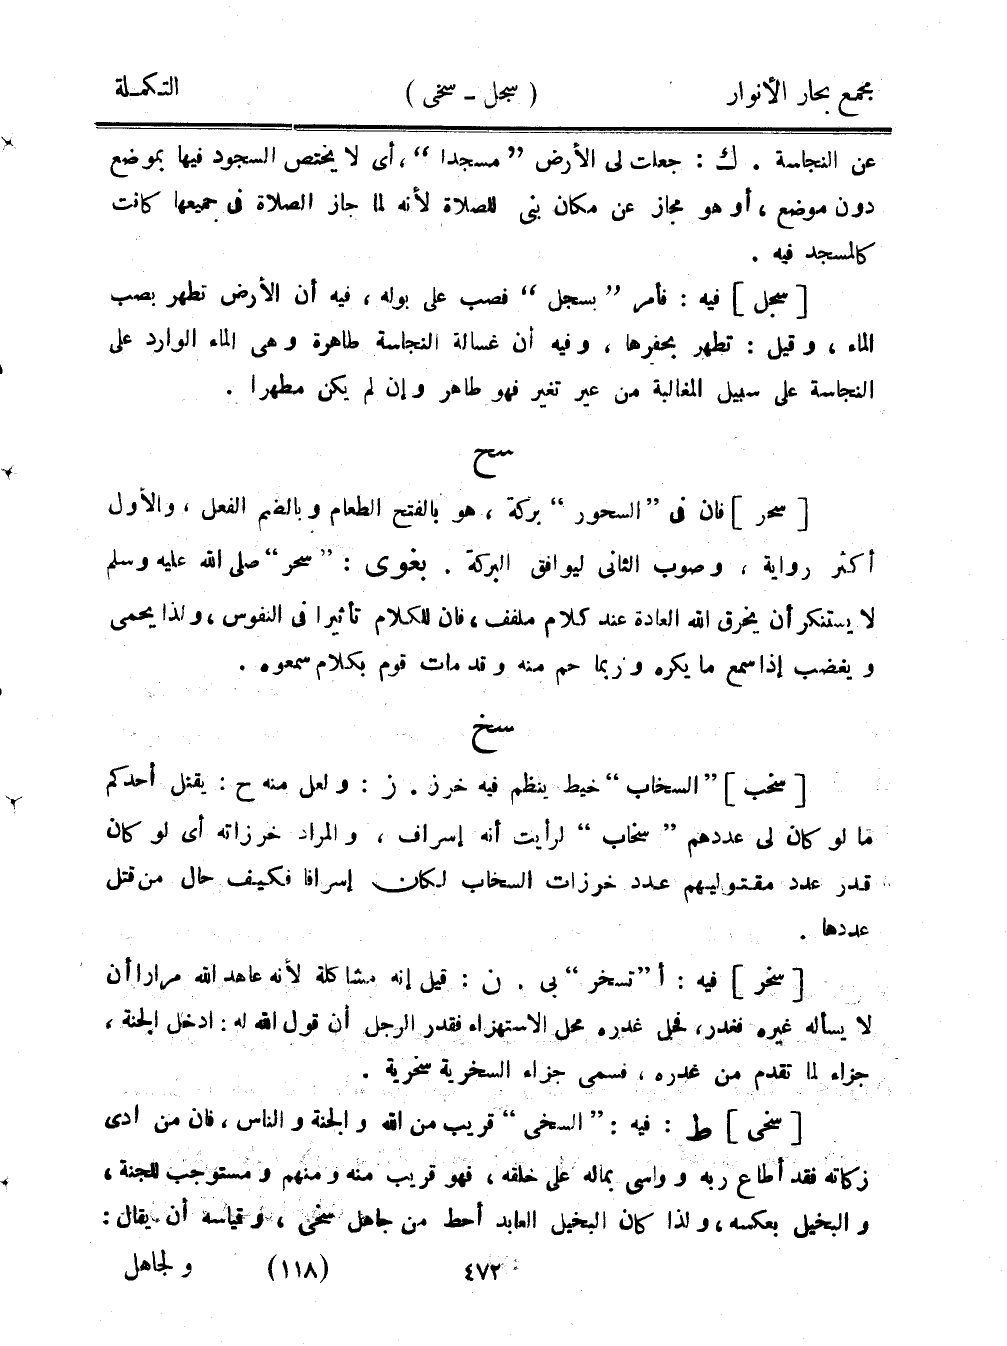 مجمع بحار الأنوار ( سجل - سخى ) التكملة
عن النجاسة . ك : جعلت لى الأرض ”مسجدا“ ، أى لا يختص السجود فيها بموضع
دون موضع ، أو هو مجاز عن مكان بنى للصلاة لأنه لما جاز الصلاة فى جميعها كانت
كالمسجد فيه .
[ سجل ] فيه : فأمر ”بسجل“ فصب على بوله ، فيه أن الأرض تطهر بصب
الماء ، و قيل : تطهر بحفرها ، و فيه أن غسالة النجاسة طاهرة و هى الماء الوارد على
النجاسة على سبيل المغالبة من عير تغير فهو طاهر و إن لم يكن مطهرا .
سح
[ سحر ] فان فى ”السحور“ بركة ، هو بالفتح الطعام و بالضم الفعل ، والأول
أكثر رواية ، و صوب الثانى ليوافق البركة . بغوى : ”سحر“ صلى الله عليه وسلم
لا يستنكر أن يخرق الله العادة عند كلام ملفف ، فان للكلام تأثيرا فى النفوس ، و لذا يحمى
و يغضب إذا سمع ما يكره و ربما حم منه و قد مات قوم بكلام سمعوه .
سخ
[ سخب ] ”السخاب“ خيط ينظم فيه خرز . ز : و لعل منه ح : يقتل أحدكم
ما لو كان لى عددهم ”سخاب“ لرأيت أنه إسراف ، و المراد خرزاته أى لو كان
قدر عدد مقتوليهم عدد خرزات السخاب لكان إسرافا فكيف حال من قتل
عددها .
[ سخر ] فيه : أ ”تسخر“ بى . ن : قيل إنه مشاكلة لأنه عاهد الله مرارا أن
لا يسأله غيره فغدر ، فحل غدره محل الاستهزاء فقدر الرجل أن قول الله له : ادخل الجنة ،
جزاء لما تقدم من غدره ، فسمى جزاء السخرية سخرية .
[ سخى ] ط : فيه : ”السخى“ قريب من الله و الجنة و الناس ، فان من ادى
زكاته فقد أطاع ربه و واسى بماله على خلقه ، فهو قريب منه و منهم و مستوجب للجنة ،
و البخيل بعكسه ، و لذا كان البخيل العابد أحط من جاهل سخى ، و قياسه أن يقال :
٤٧٢ (١١٨) و لجاهل